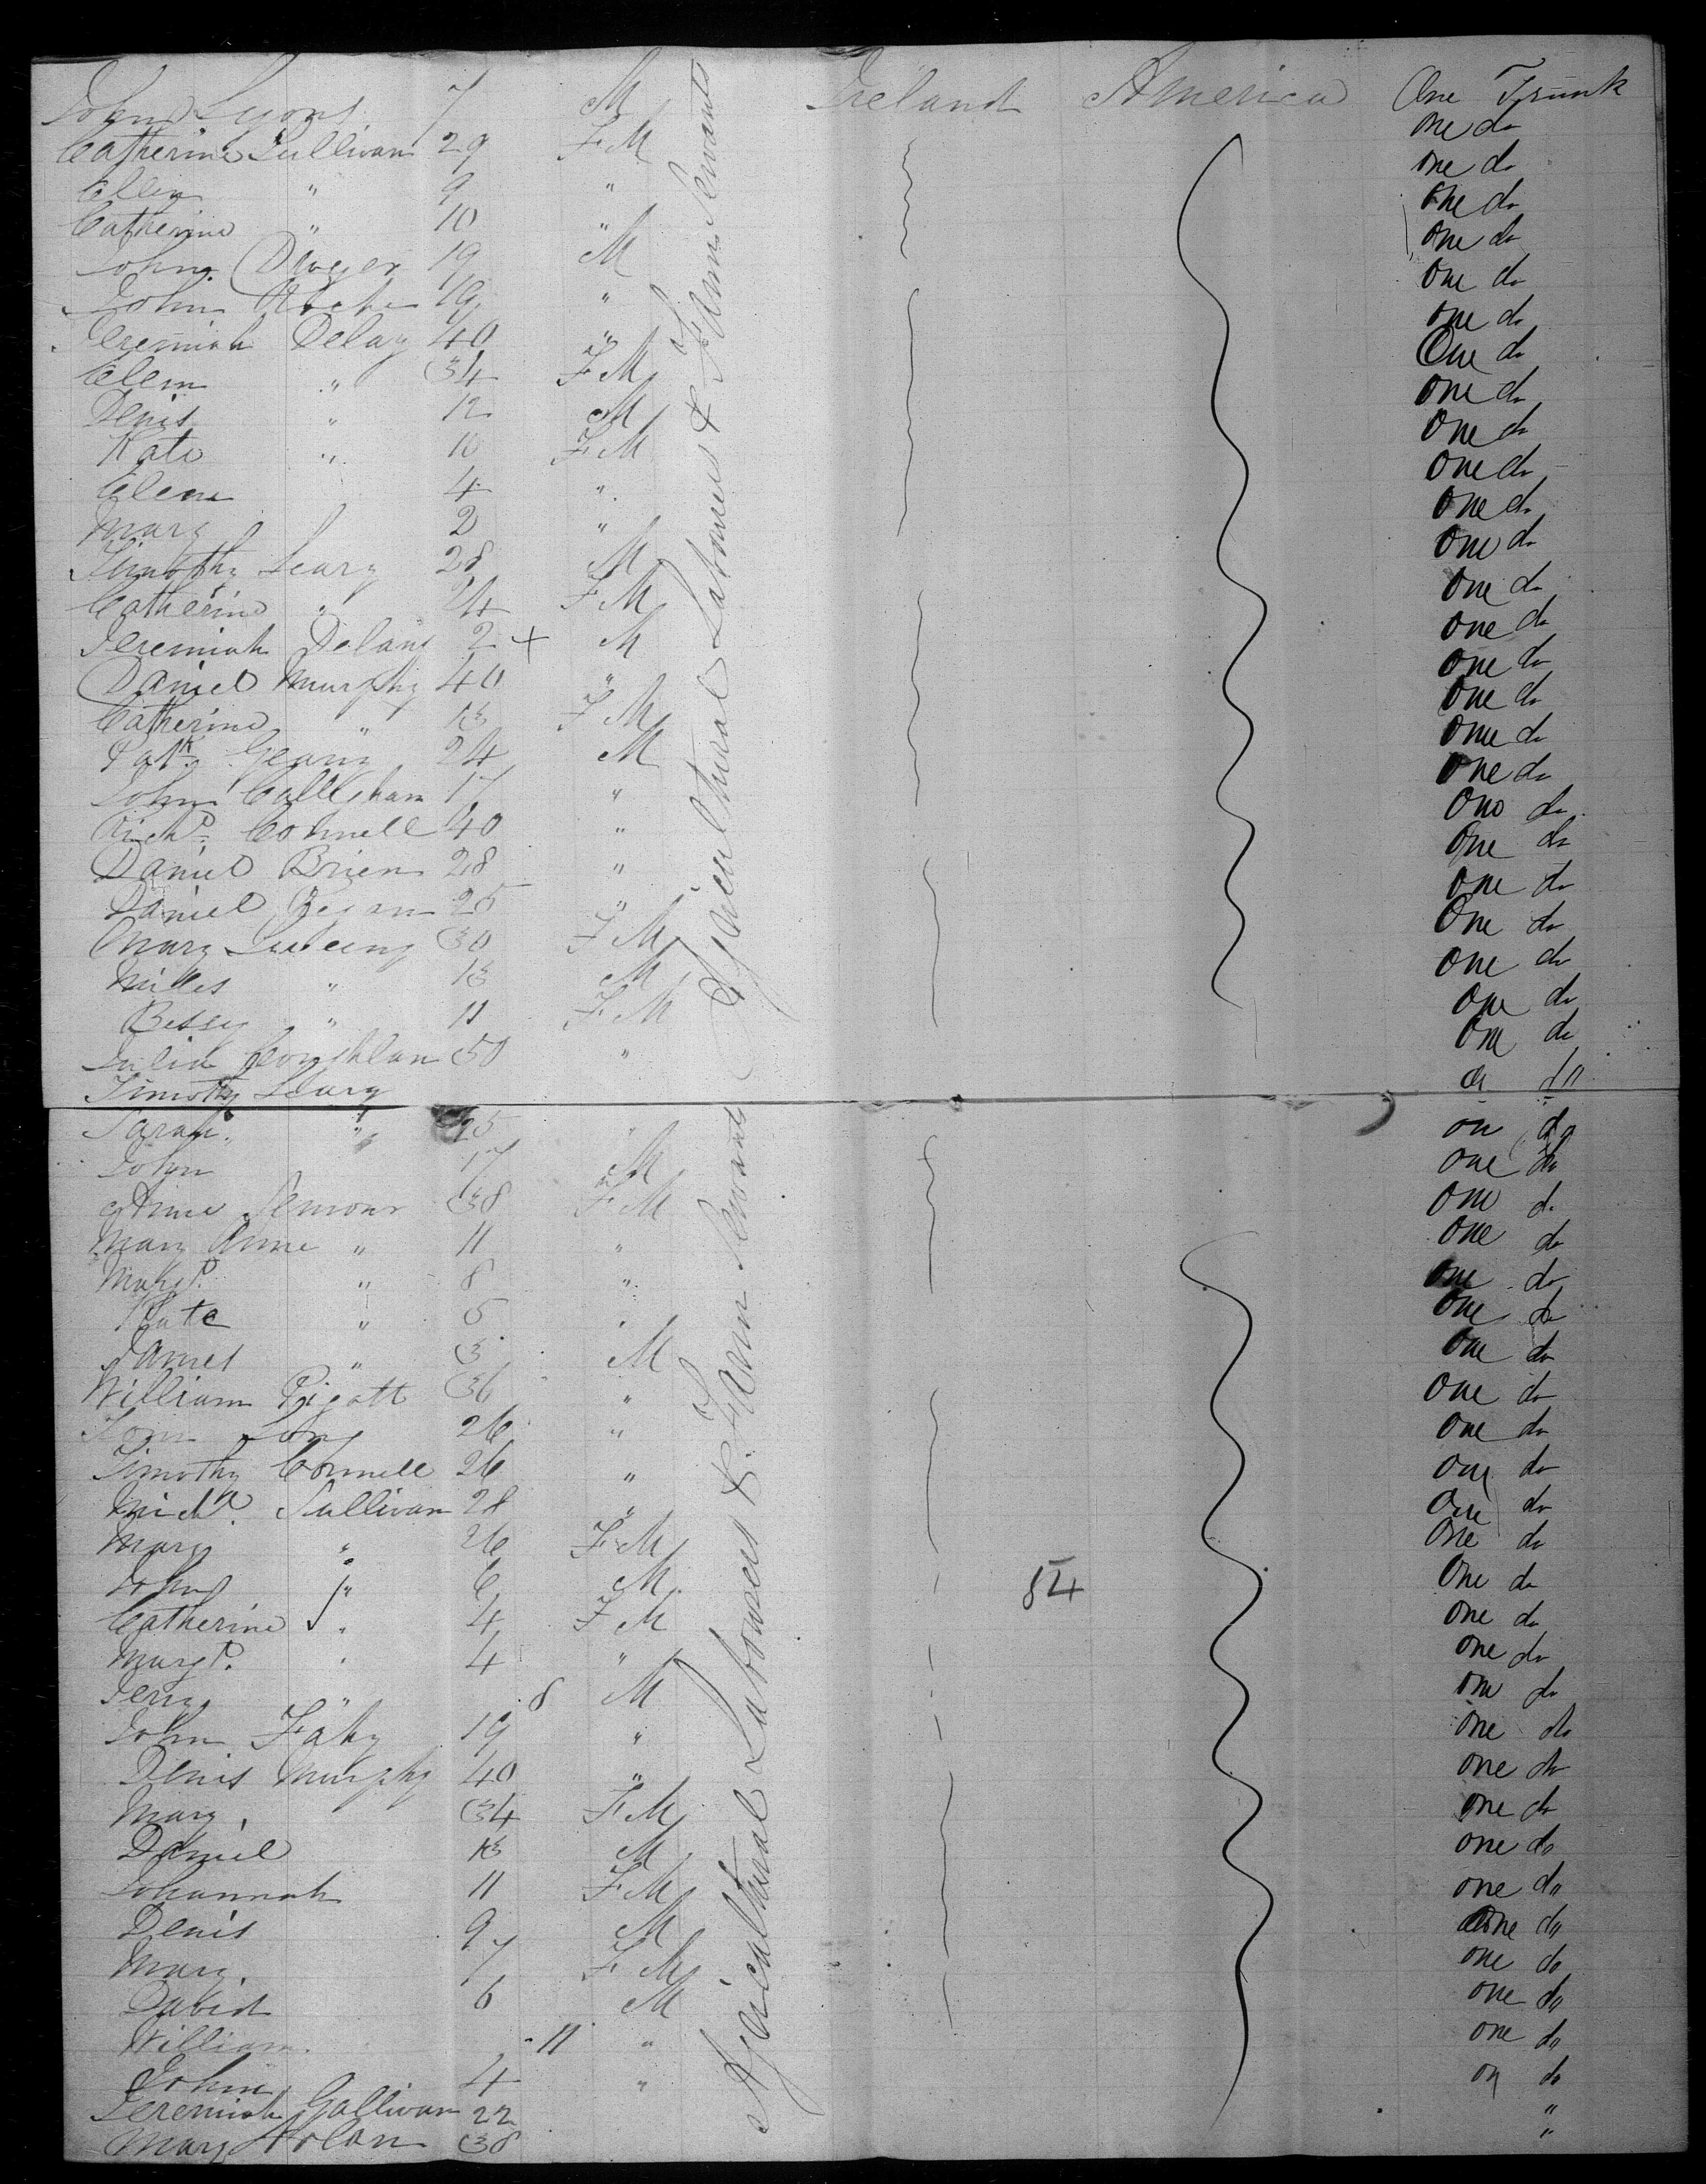 John Lyons 7 M Ireland America One Trunk
Catherine Sullivan 29 F M one do
Ellen " 9 " one do
Catherine " 10 " one do
John Dwyer 19 M one do
John 19 " one do
Jeremiah Delay 40 " one do
Ellen " 34 F M One do
Denis " 12 M one do
Kate " 10 F M one do
Ellen 4 " one do
Mary 2 " one do
Timothy Leary 28 M one do
Catherine " 24 F M one do
Jeremiah Delany 2 + M one do
Daniel Murphy 40 " one do
Catherine " 13 F M one do
Patk Geany 24 M one do
John Callighan 17 " one do
Richd Connell 40 " one do
Daniel Brien 28 " one do
Daniel Regan 25 " one do
Mary 30 F M One do
Miles " 13 M one do
Bessy " 11 F M one do
Julia Coughlan 50 " one do
Timothy Leary do
Agricultural Labourers & Farm Servants
Sarah " 25 " on do
John 17 M one do
Anne 38 F M one do
Mary Anne " 11 " one do
Margt " 8 " one do
Kate " 5 " one do
James " 3 M one do
William Pigott 36 " one do
Tom Long 26 " one do
Timothy Connell 26 " one do
Michl Sullivan 28 " One do
Mary " 26 F M One do
John " 6 M 84 One do
Catherine " 4 F M one do
Margt " 4 " one do
Jerry " 8 M one do
John Fahy 19 " one do
Denis Murphy 40 " one do
Mary 34 F M one do
Daniel 13 M one do
Johannah 11 F M one do
Denis 9 M one do
Mary 7 F M one do
David 6 M one do
William 11 " one do
John 4 " on do
Jeremiah Gallivan 22 "
Mary Nolan 38 "
Agricultural Labourers & Farm Servants